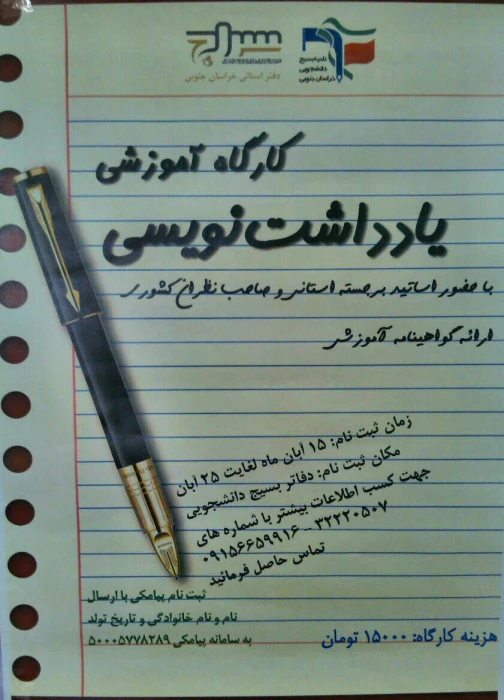 سراج
دفتر استانی خراسان جنوبی
نشریه بسیج
دانشجویی
خراسان جنوبی
کارگاه آموزشی
یادداشت نویسی
با حضور اساتید برجسته استانی و صاحب نظران کشوری
ارائه گواهینامه آموزشی
زمان ثبت نام: ۱۵ آبان ماه لغایت ۲۵ آبان
مکان ثبت نام: دفاتر بسیج دانشجویی
جهت کسب اطلاعات بیشتر با شماره های
۳۲۲۲۰۵۰۷ - ۰۹۱۵۶۶۵۹۹۱۶
تماس حاصل فرمائید
ثبت نام پیامکی با ارسال
نام و نام خانوادگی و تاریخ تولد
به سامانه پیامکی ۵۰۰۰۵۷۷۸۲۸۹
هزینه کارگاه: ۱۵۰۰۰ تومان